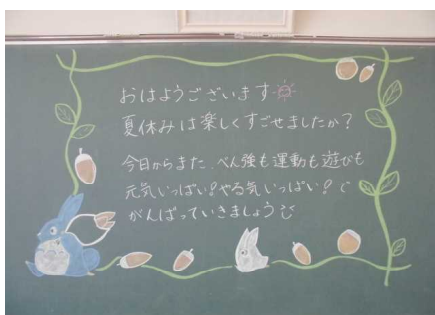 おはようございます
夏休みは楽しくすごせましたか?
今日からまた、べん強も運動も遊びも
元気いっぱい!やる気いっぱい!
がんばっていきましょう